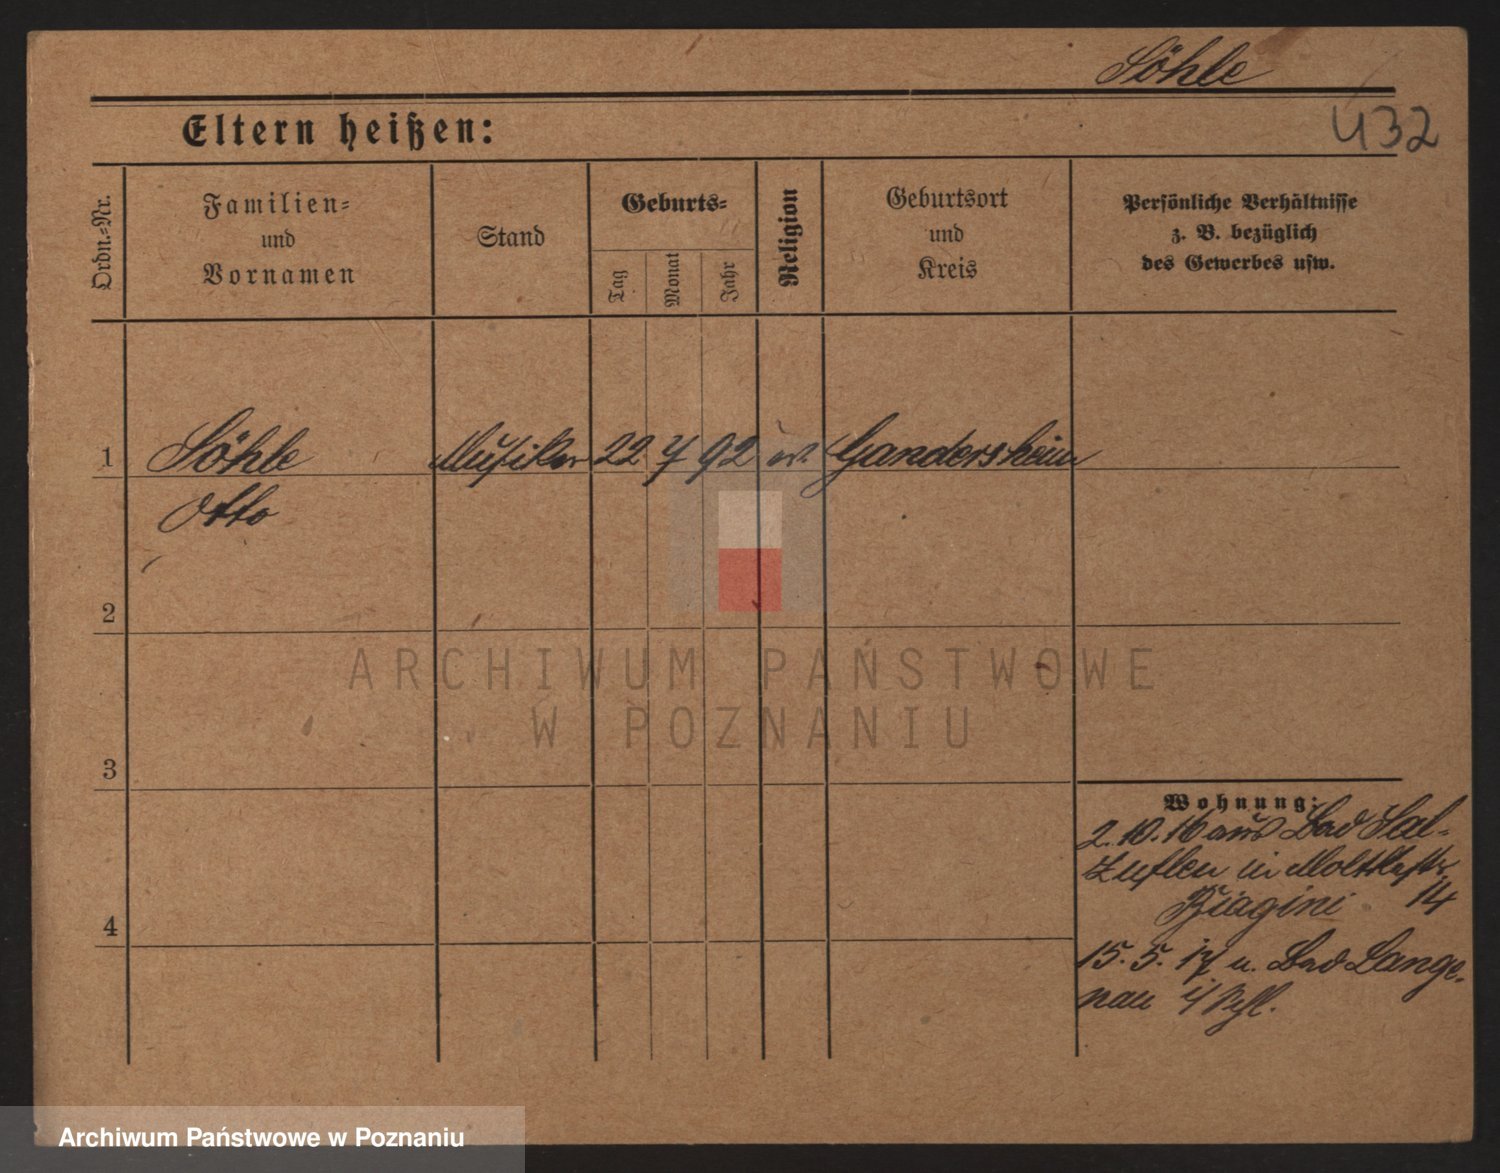 Söhle
432
Eltern heißen:
Ordn.=Nr.
Familien=
und
Vornamen
Stand
Geburts=
Tag
Monat
Jahr
Religion
Geburtsort
und
Kreis
Persönliche Verhältnisse
z. B. bezüglich
des Gewerbes usw.
1
Söhle
Musiker
22
7
92
ev.
Gandersheim
Otto
2
ARCHIWUM PAŃSTWOWE
W POZNANIU
3
Wohnung:
2. 10. 16 aus Bad Sal-
zuflen in Moltkestr.
Biagini 14
4
15. 5. 17 n. Bad Lange-
nau i/Schl.
Archiwum Państwowe w Poznaniu